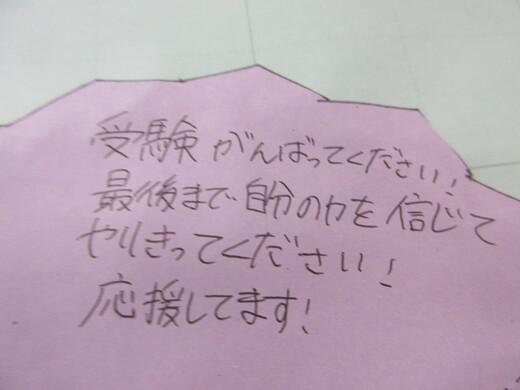 受験がんばってください!
最後まで自分の力を信じて
やりきってください!
応援してます!